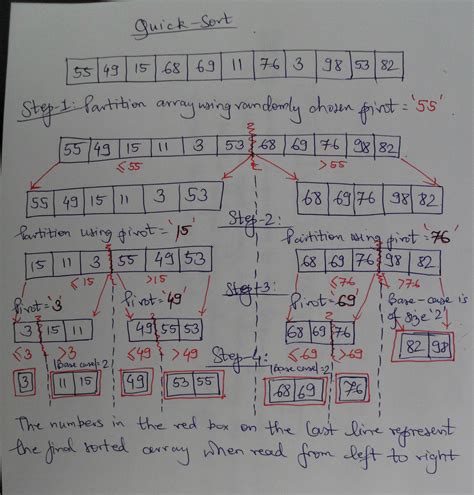 Quick-Sort
55 49 15 68 69 11 76 3 98 53 82
Step-1: Partition array using randomly chosen pivot = '55'
55 49 15 11 3 53 68 69 76 98 82
≤55 >55
55 49 15 11 3 53 68 69 76 98 82
Step-2:
Partition using pivot = '15' Partition using pivot = '76'
15 11 3 55 49 53 68 69 76 98 82
≤15 >15 ≤76 >76
Step-3:
Pivot = '3' Pivot = '49' Pivot = 69 Base-case is of size '2'
3 15 11 49 55 53 68 69 76 82 98
≤3 >3 ≤49 >49 ≤69 >69
Step-4:
|Base case|=2 |Base case|=2
3 11 15 49 53 55 68 69 76
The numbers in the red box on the last line represent
the final sorted array when read from left to right